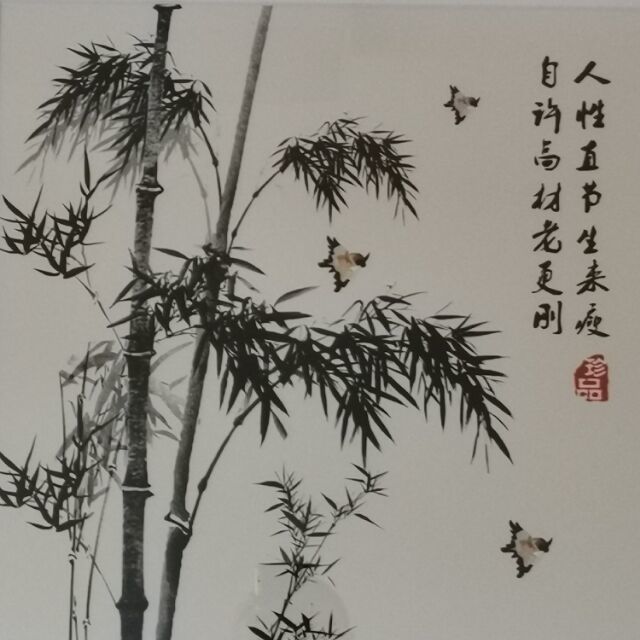 人性直节生来瘦
自许高材老更刚
珍品